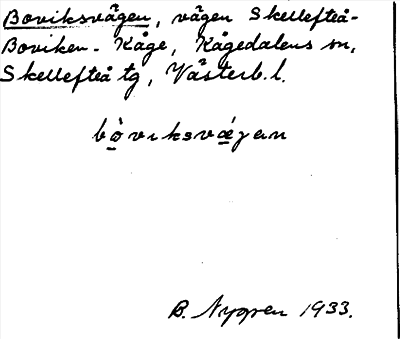 Boviksvägen, vägen Skellefteå-
Boviken- Kåge, Kågedalens sn,
Skellefteå tg, Västerb. l.
bòviksvǽgan
B. Nygren 1933.